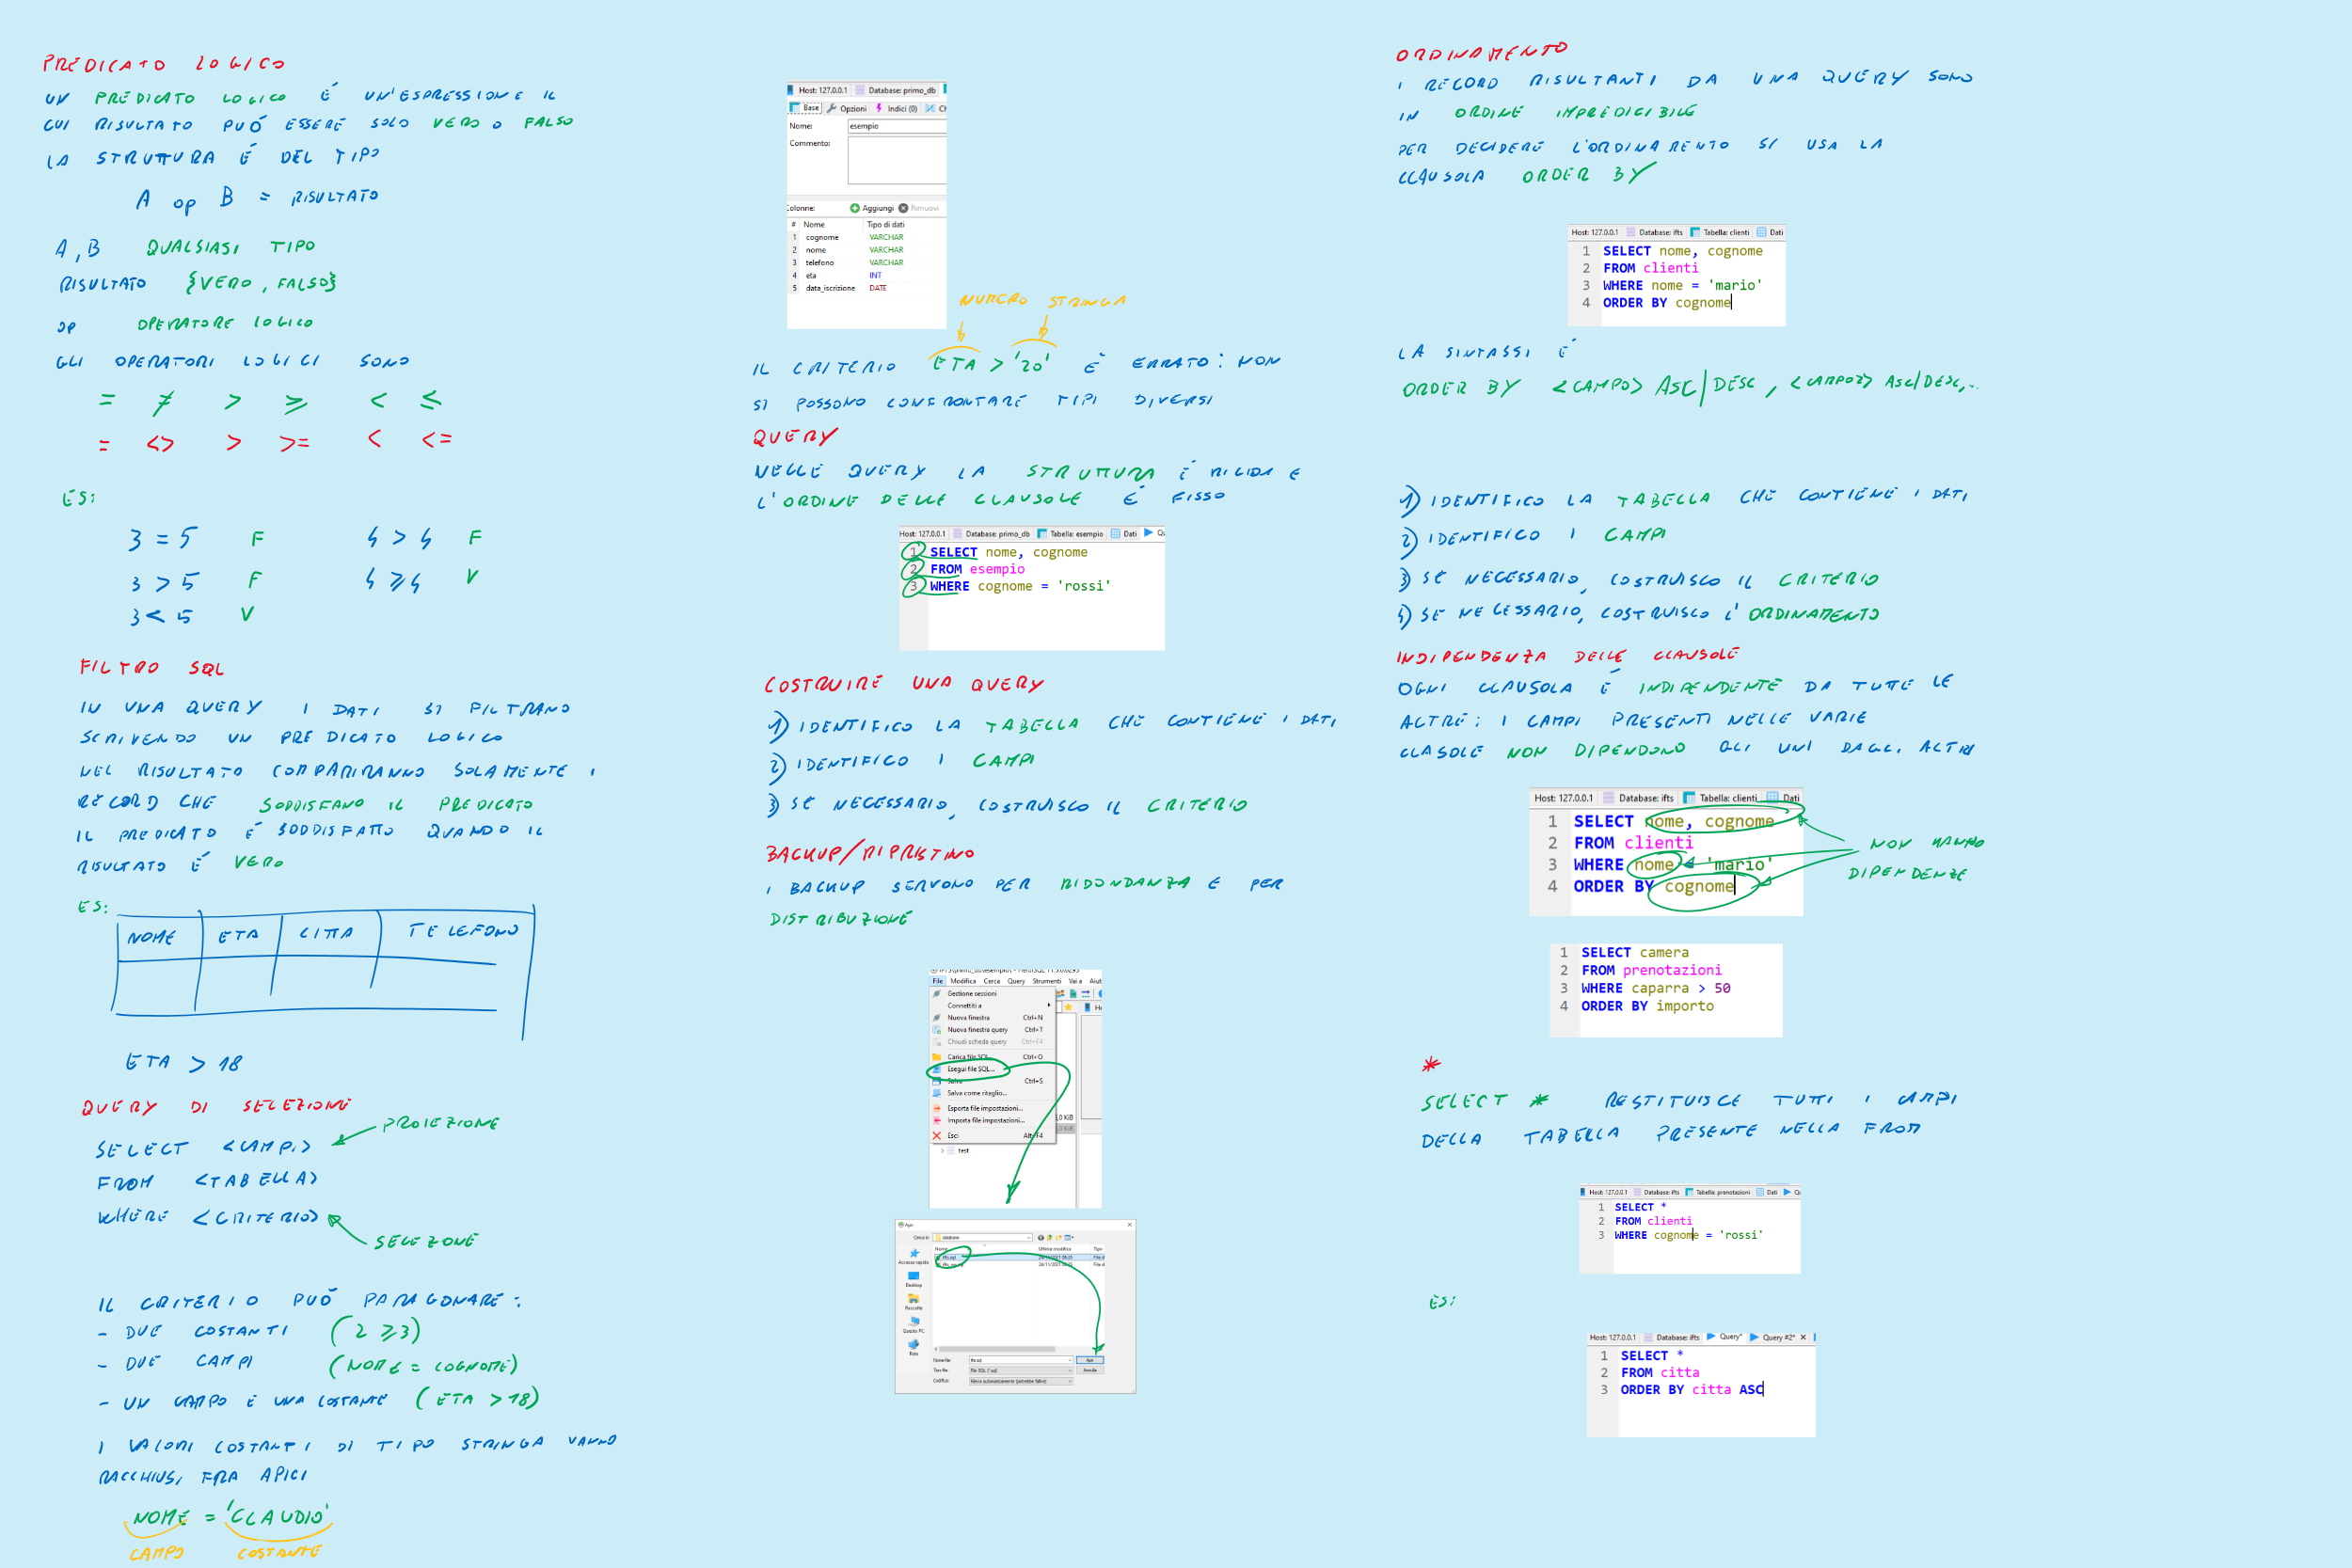 PREDICATO LOGICO
UN PREDICATO LOGICO É UN'ESPRESSIONE IL
CUI RISULTATO PUÓ ESSERE SOLO VERO O FALSO
LA STRUTTURA É DEL TIPO
A op B = RISULTATO
A, B QUALSIASI TIPO
RISULTATO {VERO, FALSO}
OP OPERATORE LOGICO
GLI OPERATORI LOGICI SONO
= ≠ > ≥ < ≤
= <> > >= < <=
ES:
3 = 5 F 4 > 4 F
3 > 5 F 4 ≥ 4 V
3 < 5 V
FILTRO SQL
IN UNA QUERY I DATI SI FILTRANO
SCRIVENDO UN PREDICATO LOGICO
NEL RISULTATO COMPARIRANNO SOLAMENTE I
RECORD CHE SODDISFANO IL PREDICATO
IL PREDICATO É SODDISFATTO QUANDO IL
RISULTATO É VERO
ES:
NOME ETA CITTA TELEFONO
ETA > 18
QUERY DI SELEZIONE
SELECT <CAMPI> PROIEZIONE
FROM <TABELLA>
WHERE <CRITERIO>
SELEZIONE
IL CRITERIO PUÓ PARAGONARE:
- DUE COSTANTI (2 ≥ 3)
- DUE CAMPI (NOME = COGNOME)
- UN CAMPO E UNA COSTANTE (ETA > 18)
I VALORI COSTANTI DI TIPO STRINGA VANNO
RACCHIUSI FRA APICI
NOME = 'CLAUDIO'
CAMPO COSTANTE
Host: 127.0.0.1 Database: primo_db
Base Opzioni Indici (0) Ch
Nome: esempio
Commento:
Colonne: Aggiungi Rimuovi
# Nome Tipo di dati
1 cognome VARCHAR
2 nome VARCHAR
3 telefono VARCHAR
4 eta INT
5 data_iscrizione DATE
NUMERO STRINGA
IL CRITERIO ETA > '20' É ERRATO: NON
SI POSSONO CONFRONTARE TIPI DIVERSI
QUERY
NELLE QUERY LA STRUTTURA É RIGIDA E
L'ORDINE DELLE CLAUSOLE É FISSO
Host: 127.0.0.1 Database: primo_db Tabella: esempio Dati Qu
1 SELECT nome, cognome
2 FROM esempio
3 WHERE cognome = 'rossi'
COSTRUIRE UNA QUERY
1) IDENTIFICO LA TABELLA CHE CONTIENE I DATI
2) IDENTIFICO I CAMPI
3) SE NECESSARIO, COSTRUISCO IL CRITERIO
BACKUP/RIPRISTINO
I BACKUP SERVONO PER RIDONDANZA E PER
DISTRIBUZIONE
File Modifica Cerca Query Strumenti Vai a Aiut
Gestione sessioni
Connettiti a
Nuova finestra Ctrl+N
Nuova finestra query Ctrl+T
Chiudi scheda query Ctrl+F4
Carica file SQL... Ctrl+O
Esegui file SQL...
Salva Ctrl+S
Salva come ritaglio...
Esporta file impostazioni...
Importa file impostazioni...
Esci Alt+F4
test
Apri
Cerca in: database
Nome Ultima modifica Tipo
Accesso rapido
Desktop
Raccolte
Questo PC
Rete
Nome file: ifts.sql Apri
Tipo file: File SQL (*.sql) Annulla
Codifica: Rileva automaticamente (potrebbe fallire)
ORDINAMENTO
I RECORD RISULTANTI DA UNA QUERY SONO
IN ORDINE IMPREDICIBILE
PER DECIDERE L'ORDINAMENTO SI USA LA
CLAUSOLA ORDER BY
Host: 127.0.0.1 Database: ifts Tabella: clienti Dati
1 SELECT nome, cognome
2 FROM clienti
3 WHERE nome = 'mario'
4 ORDER BY cognome
LA SINTASSI É
ORDER BY <CAMPO> ASC/DESC, <CAMPO2> ASC/DESC,...
1) IDENTIFICO LA TABELLA CHE CONTIENE I DATI
2) IDENTIFICO I CAMPI
3) SE NECESSARIO, COSTRUISCO IL CRITERIO
4) SE NECESSARIO, COSTRUISCO L'ORDINAMENTO
INDIPENDENZA DELLE CLAUSOLE
OGNI CLAUSOLA É INDIPENDENTE DA TUTTE LE
ALTRE: I CAMPI PRESENTI NELLE VARIE
CLASOLE NON DIPENDONO GLI UNI DAGLI ALTRI
Host: 127.0.0.1 Database: ifts Tabella: clienti Dati
1 SELECT nome, cognome
2 FROM clienti
3 WHERE nome = 'mario'
4 ORDER BY cognome
NON HANNO
DIPENDENZE
1 SELECT camera
2 FROM prenotazioni
3 WHERE caparra > 50
4 ORDER BY importo
*
SELECT * RESTITUISCE TUTTI I CAMPI
DELLA TABELLA PRESENTE NELLA FROM
Host: 127.0.0.1 Database: ifts Tabella: prenotazioni Dati Qu
1 SELECT *
2 FROM clienti
3 WHERE cognome = 'rossi'
ES:
Host: 127.0.0.1 Database: ifts Query* Query #2*
1 SELECT *
2 FROM citta
3 ORDER BY citta ASC